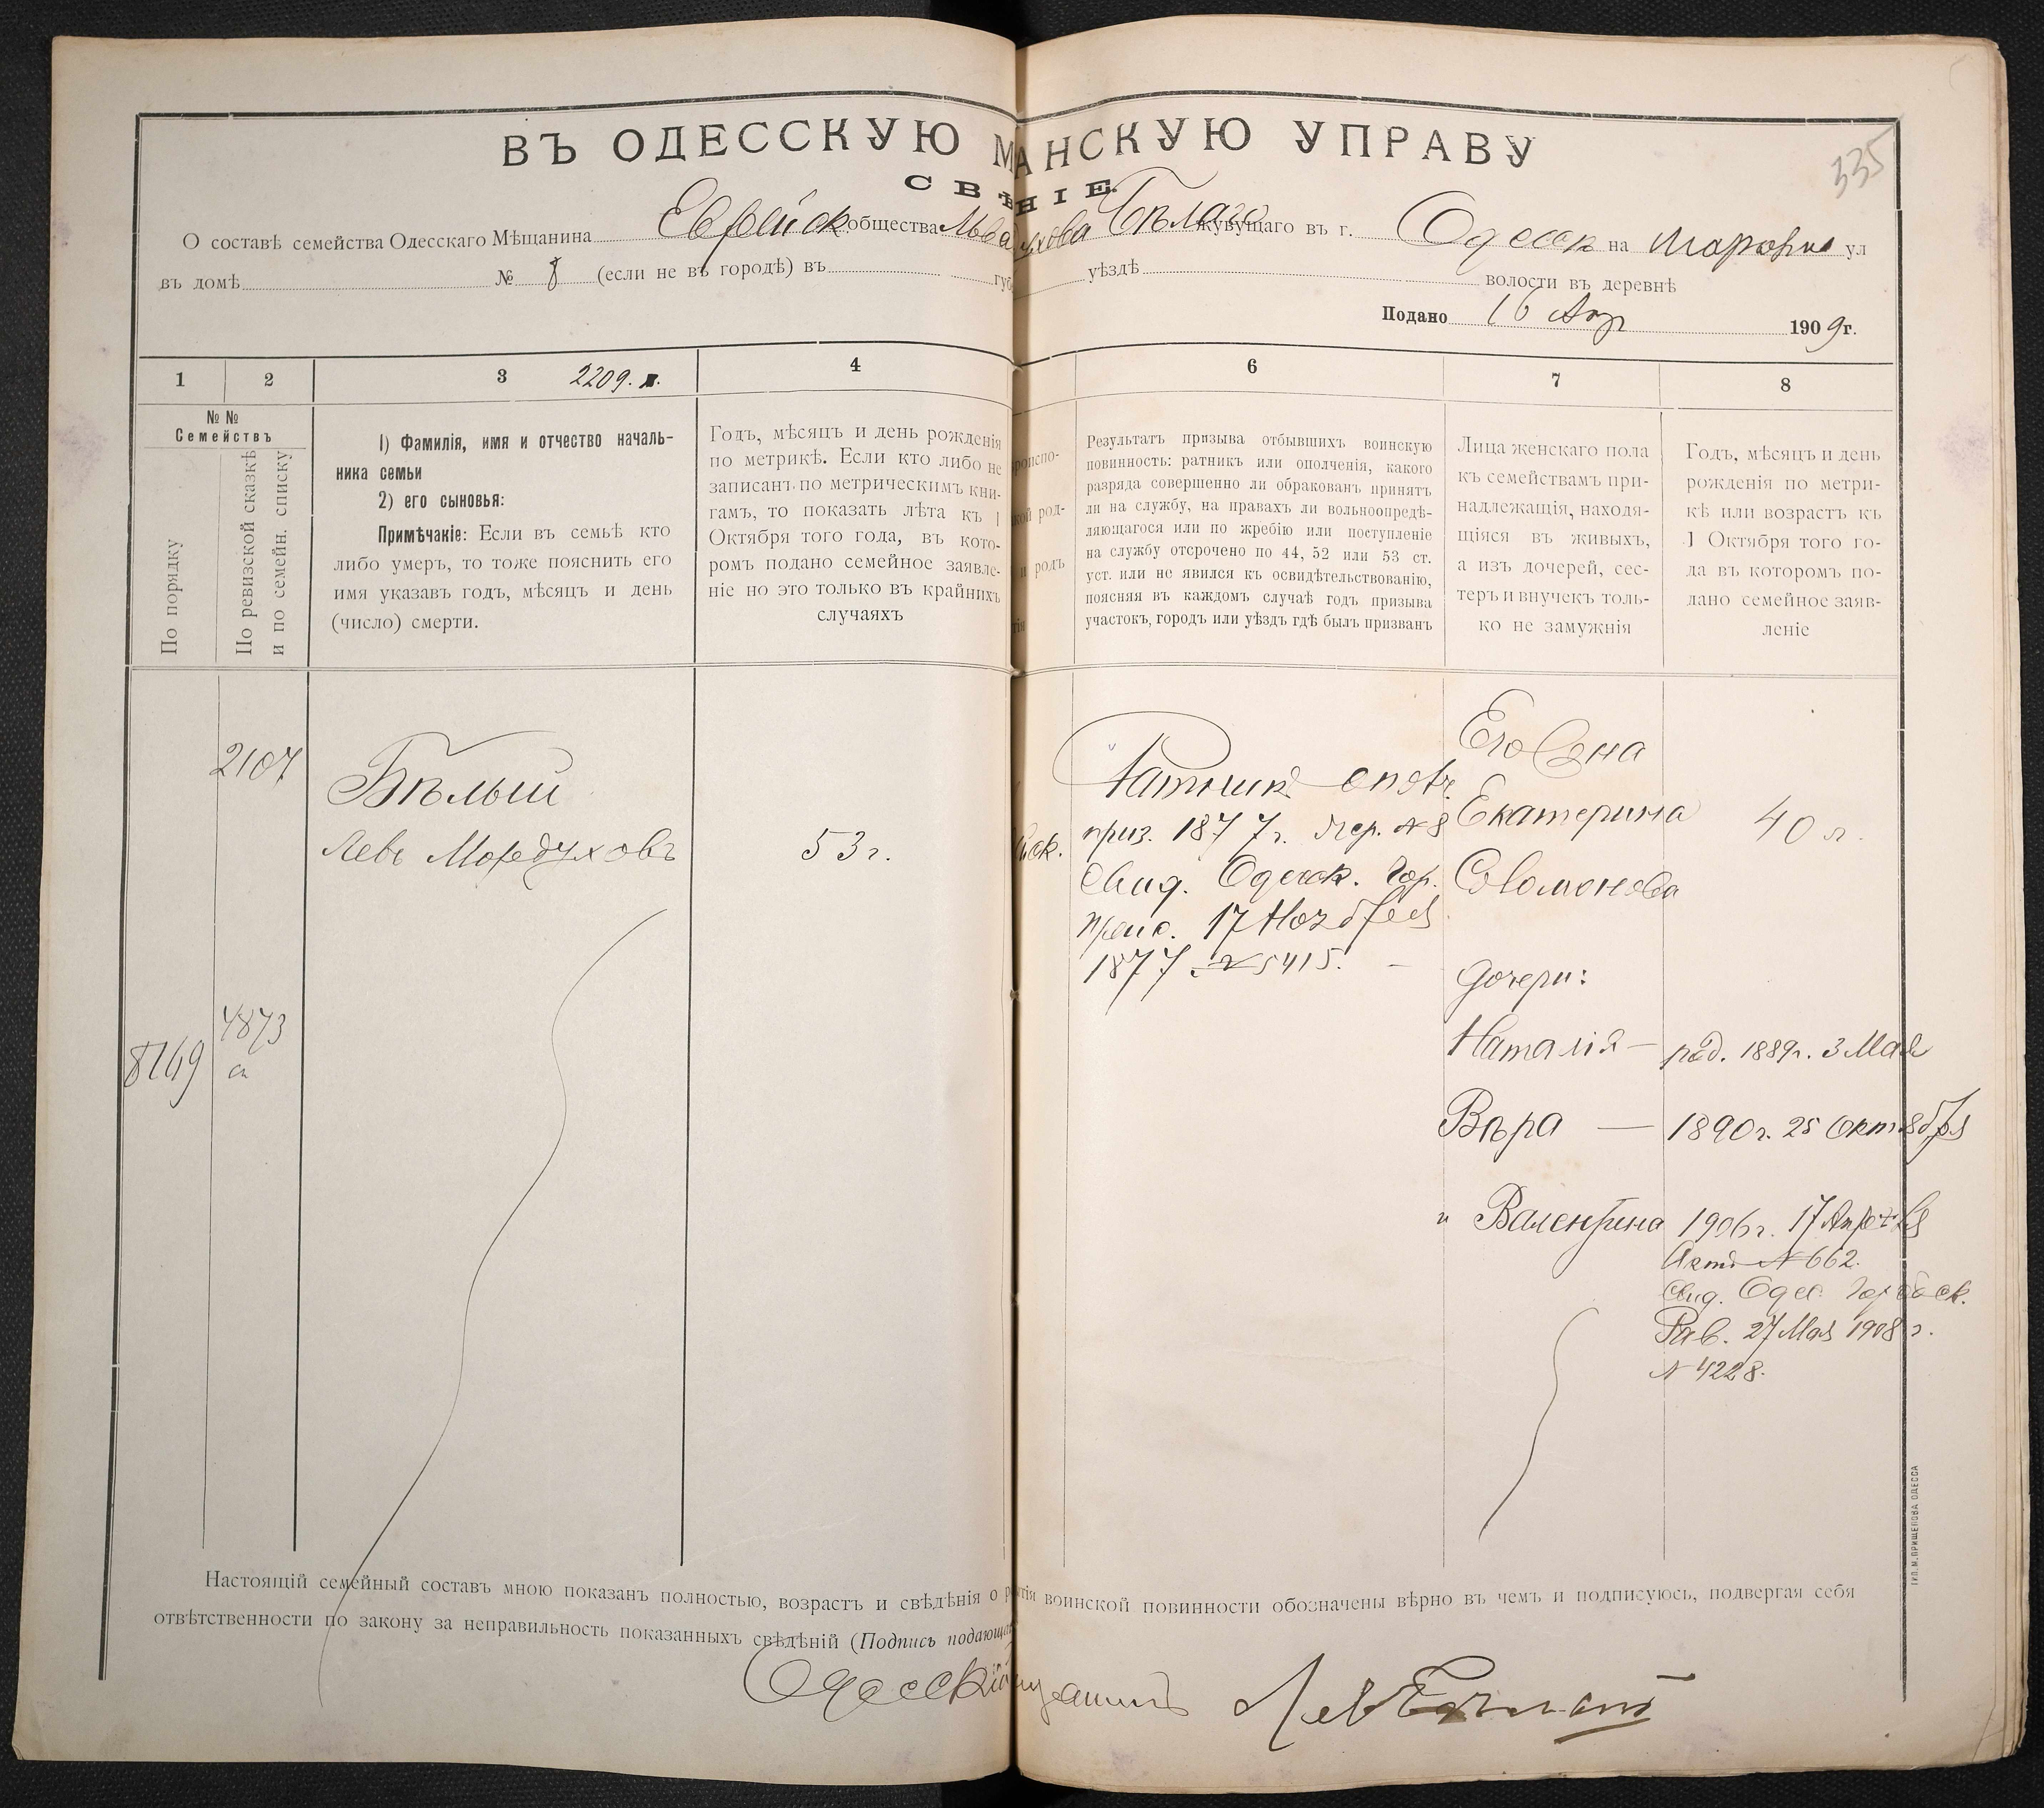 335
ВЪ ОДЕССКУЮ М АНСКУЮ УПРАВУ
СВѢ НІЕ.
О составѣ семейства Одесскаго Мѣщанина Еврейск. общества Льва ухова Бѣлаго живущаго въ г. Одессѣ на ул
въ домѣ № 8 (если не въ городѣ) въ губ уѣздѣ волости въ деревнѣ
Подано 16 Апр 1909г.
1 2 3 2209. 4 6 7 8
№ №
Семействъ
По порядку
По ревизской сказкѣ
и по семейн. списку
1) Фамилія, имя и отчество началь-
ника семьи
2) его сыновья:
Примѣчаніе: Если въ семьѣ кто
либо умеръ, то тоже пояснить его
имя указавъ годъ, мѣсяцъ и день
(число) смерти.
Годъ, мѣсяцъ и день рожденія
по метрикѣ. Если кто либо не
записанъ по метрическимъ кни-
гамъ, то показать лѣта къ 1
Октября того года, въ кото-
ромъ подано семейное заявле-
ніе но это только въ крайнихъ
случаяхъ
роиспо-
кой род-
и родъ
тіи
Результатъ призыва отбывшихъ воинскую
повинность: ратникъ или ополченія, какого
разряда совершенно ли обракованъ принятъ
ли на службу, на правахъ ли вольноопредѣ-
ляющагося или по жребію или поступленіе
на службу отсрочено по 44, 52 или 53 ст.
уст. или не явился къ освидѣтельствованію,
поясняя въ каждомъ случаѣ годъ призыва
участокъ, городъ или уѣздъ гдѣ былъ призванъ
Лица женскаго пола
къ семействамъ при-
надлежащія, находя-
щіяся въ живыхъ,
а изъ дочерей, сес-
теръ и внучекъ толь-
ко не замужнія
Годъ, мѣсяцъ и день
рожденія по метри-
кѣ или возрастъ къ
1 Октября того го-
да въ которомъ по-
дано семейное заяв-
леніе
2107
8769
4873
сп
Бѣлый
Левъ Мордуховъ
53 г.
ск.
Ратникъ ополч.
приз. 1877г. жер. №8
Свид. Одесск. Гор.
прис. 17 Ноября
1877 № 5415. –
Его жена
Екатерина
Соломонова
40 л.
дочери:
Наталія – род. 1889г. 3 Мая
Вѣра – 1890г. 25 Октября
и Валентина 1906г. 17 Апрѣля
Актъ № 662.
Свид. Одес.
Рав. 27 Мая 1908 г.
№ 4228.
Настоящій семейный составъ мною показанъ полностью, возрастъ и свѣдѣнія о р тія воинской повинности обозначены вѣрно въ чемъ и подписуюсь, подвергая себя
отвѣтственности по закону за неправильность показанныхъ свѣдѣній (Подпись подающа
Одесскій щанинъ Левъ Бѣлый
ТИП. М. ПРИЩЕПОВА ОДЕССА